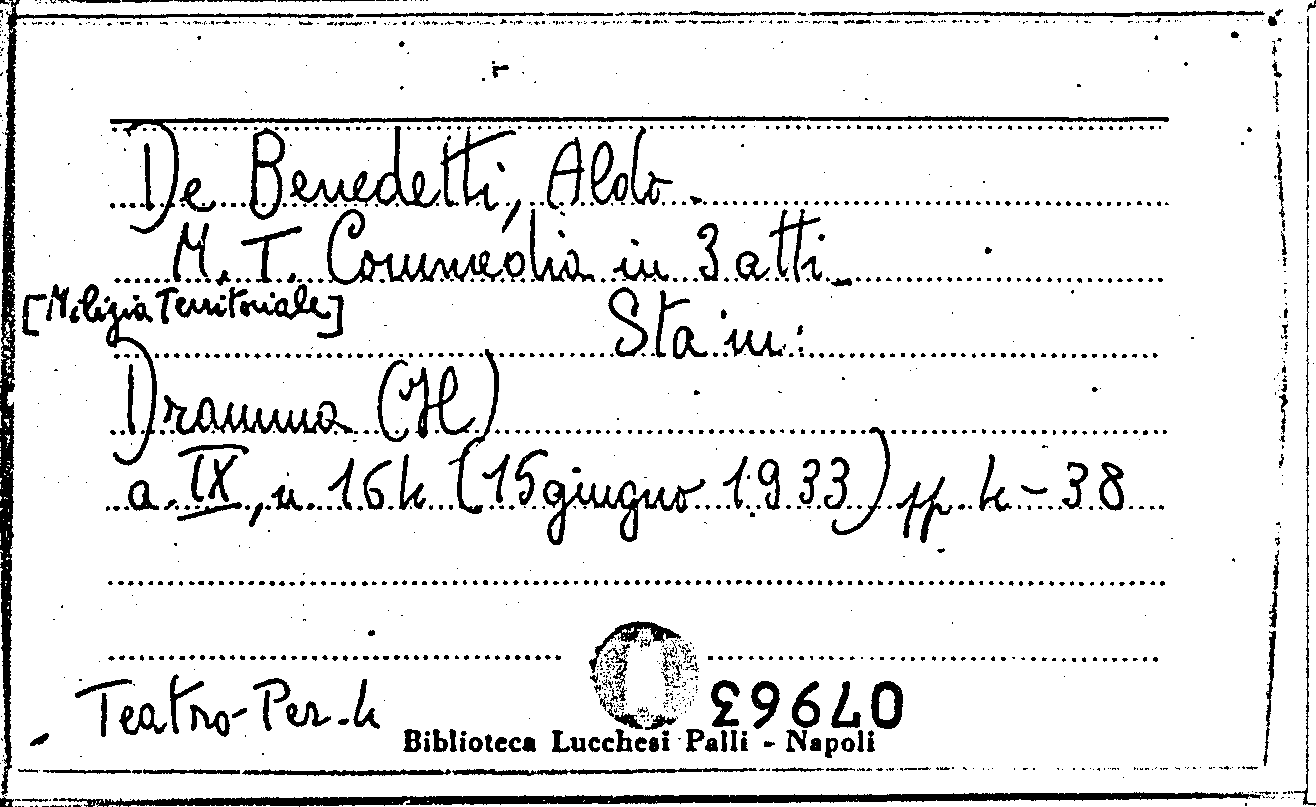 De Benedetti, Aldo.
M. T. Commedia in 3 atti_
[Milizia Territoriale]
Sta in:
Dramma (Il)
a. IX, n. 164 (15 giugno 1933) pp. 4-38
Teatro-Per.4
079963
Biblioteca Lucchesi Palli - Napoli